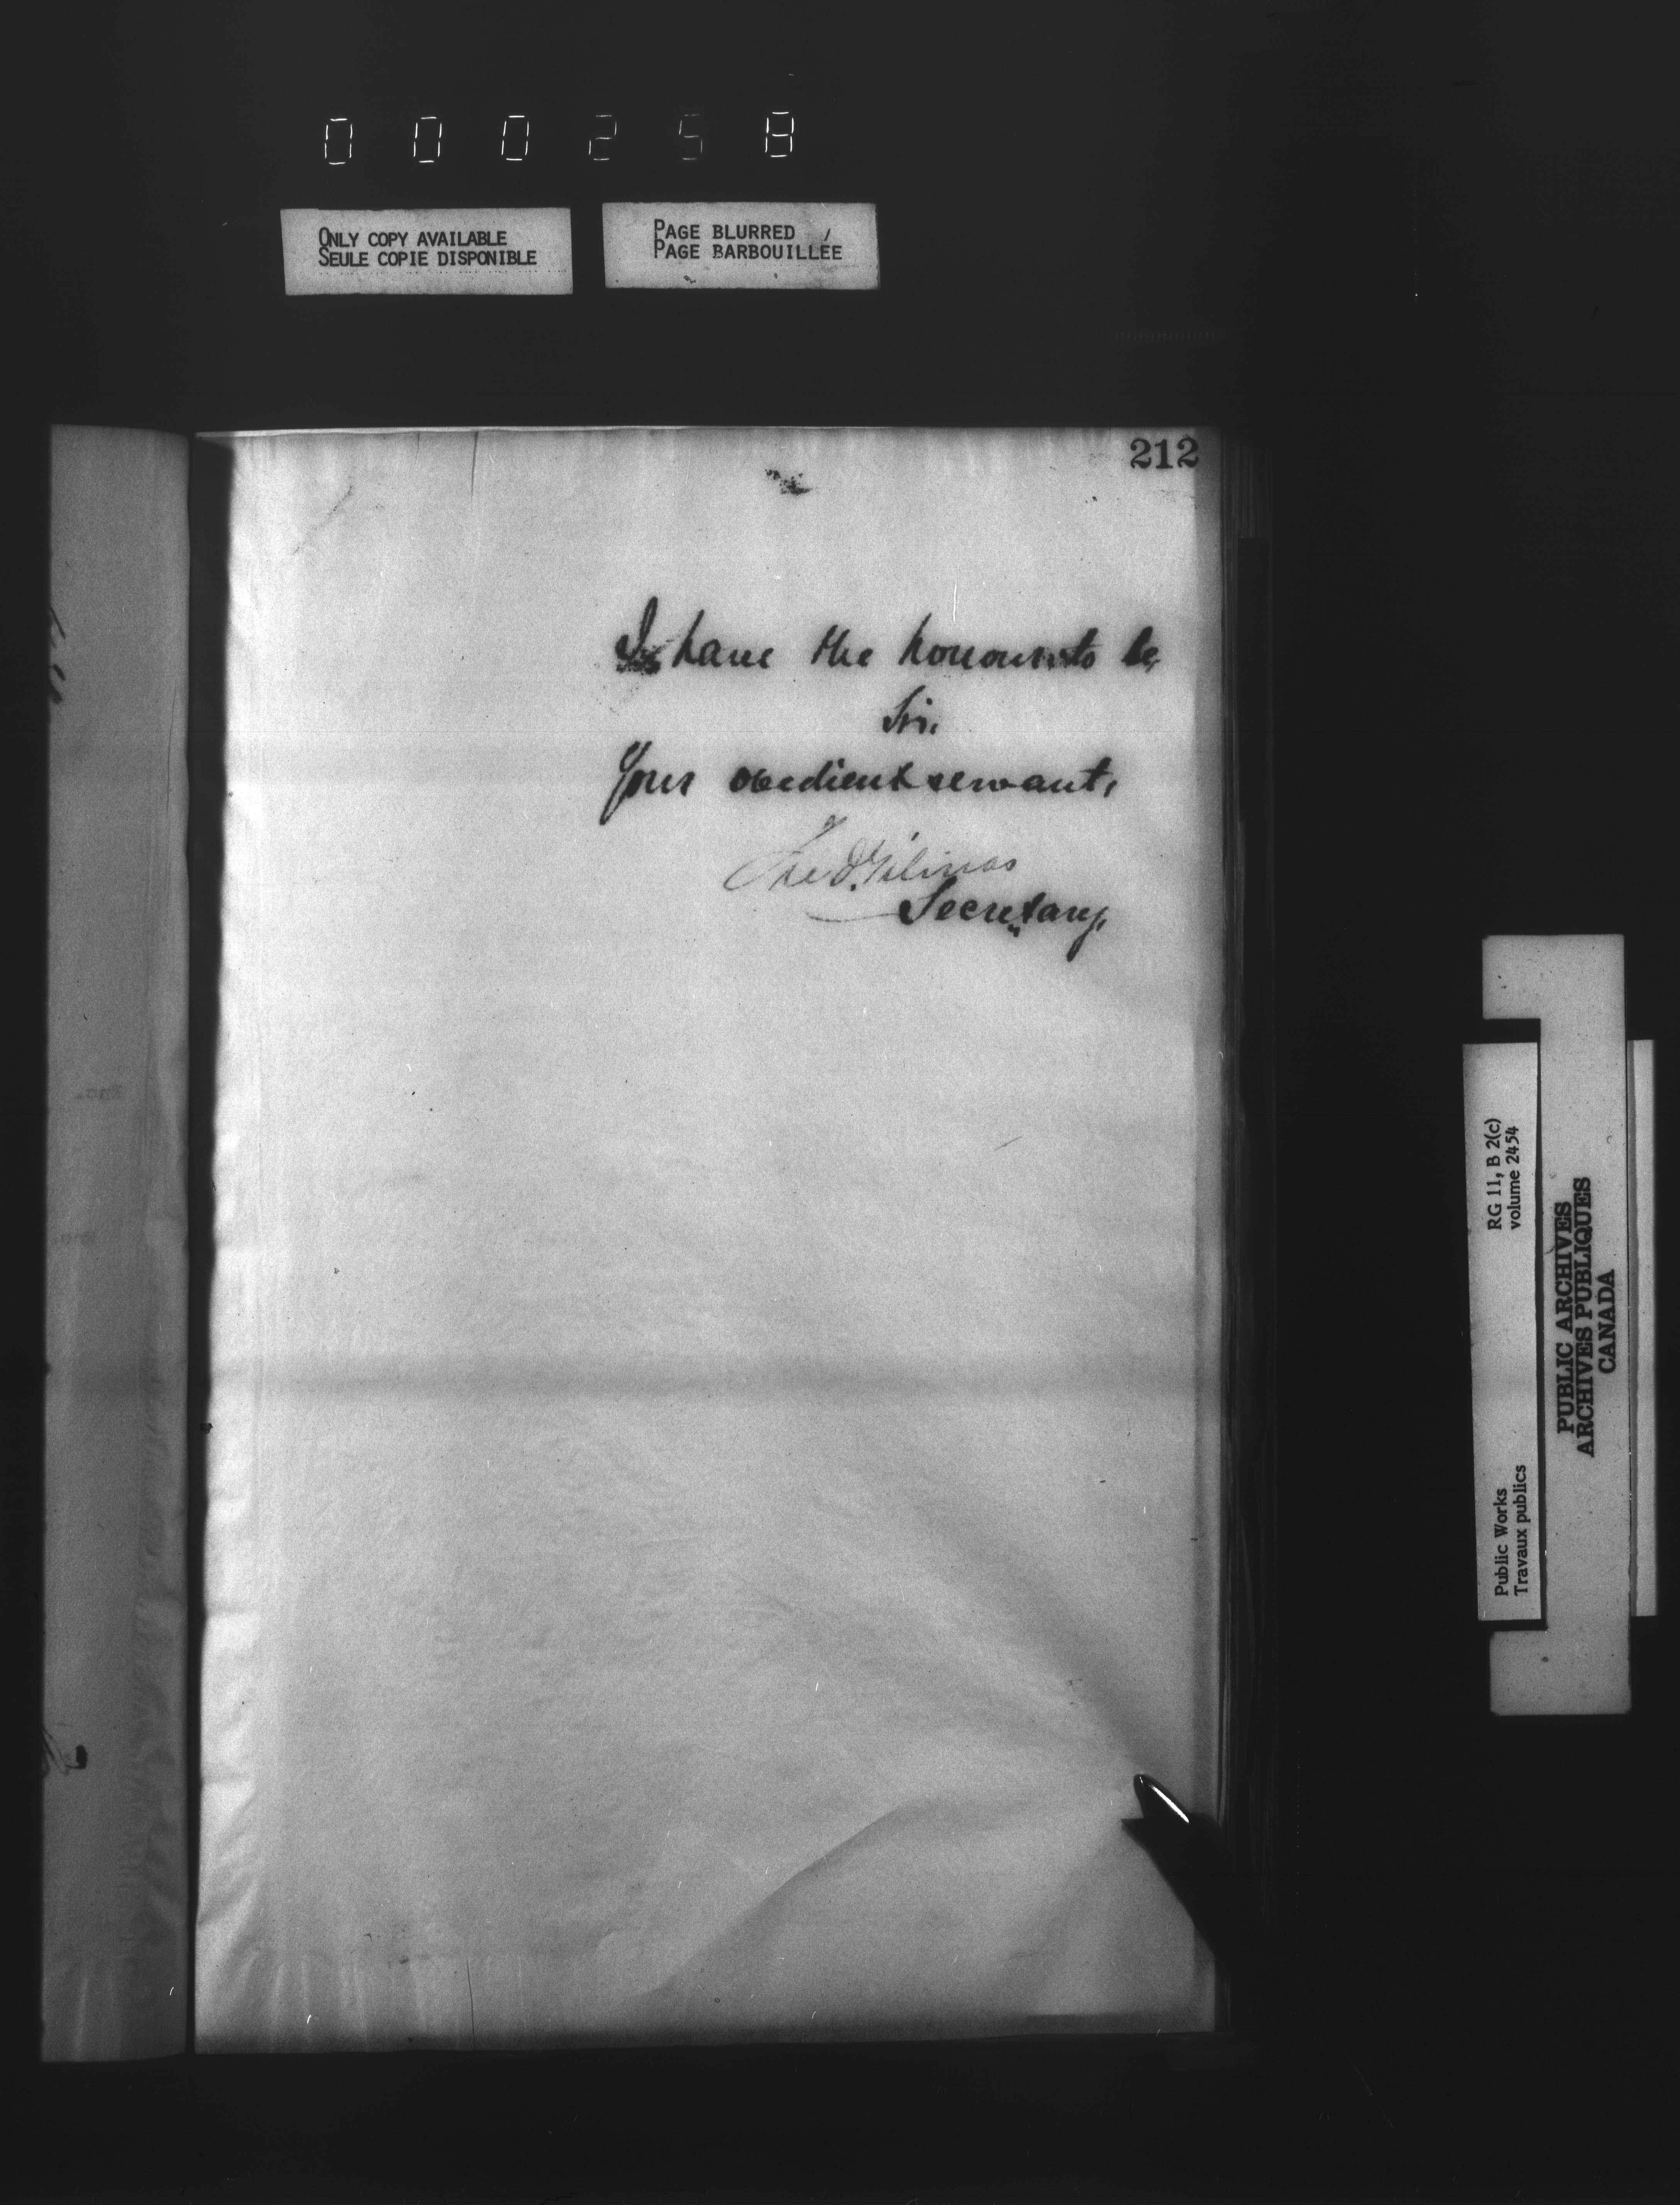 000258
ONLY COPY AVAILABLE
SEULE COPIE DISPONIBLE
PAGE BLURRED
PAGE BARBOUILLÉE
212
I have the honour to be,
Sir,
Your obedient servant,
Fred Gélinas
Secretary,
RG 11, B 2(c)
volume 2454
Public Works
Travaux publics
PUBLIC ARCHIVES
ARCHIVES PUBLIQUES
CANADA